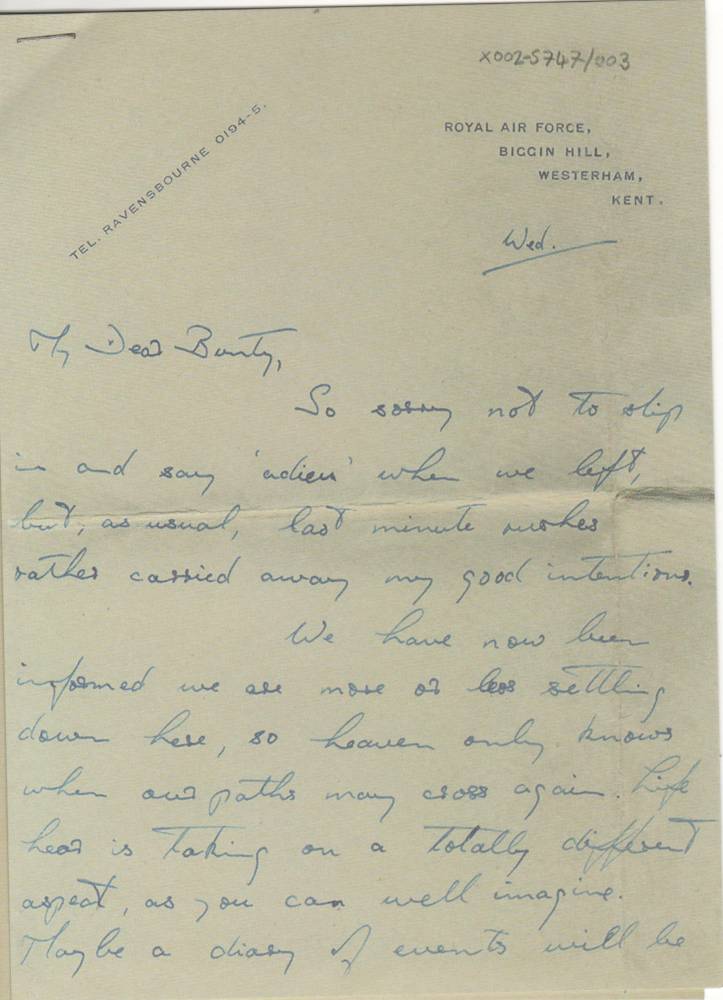 X002-5747/003
TEL. RAVENSBOURNE 0194-5.
ROYAL AIR FORCE,
BIGGIN HILL,
WESTERHAM,
KENT.
Wed.
My Dear Bunty,
So sorry not to slip
in and say 'adieu' when we left,
but, as usual, last minute rushes
rather carried away my good intentions.
We have now been
informed we are more or less settling
down here, so heaven only knows
when our paths may cross again. Life
hear is taking on a totally different
aspect, as you can well imagine.
Maybe a diary of events will be